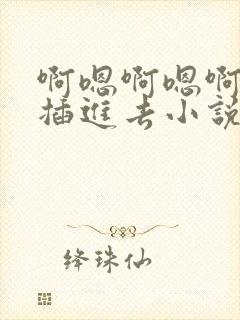 啊嗯啊嗯啊
插進去小說
绛珠仙